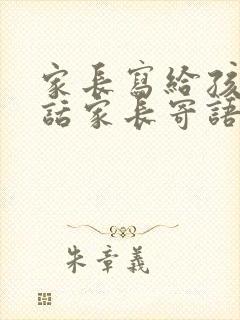 家長寫給孩
話家長寄語
朱章義